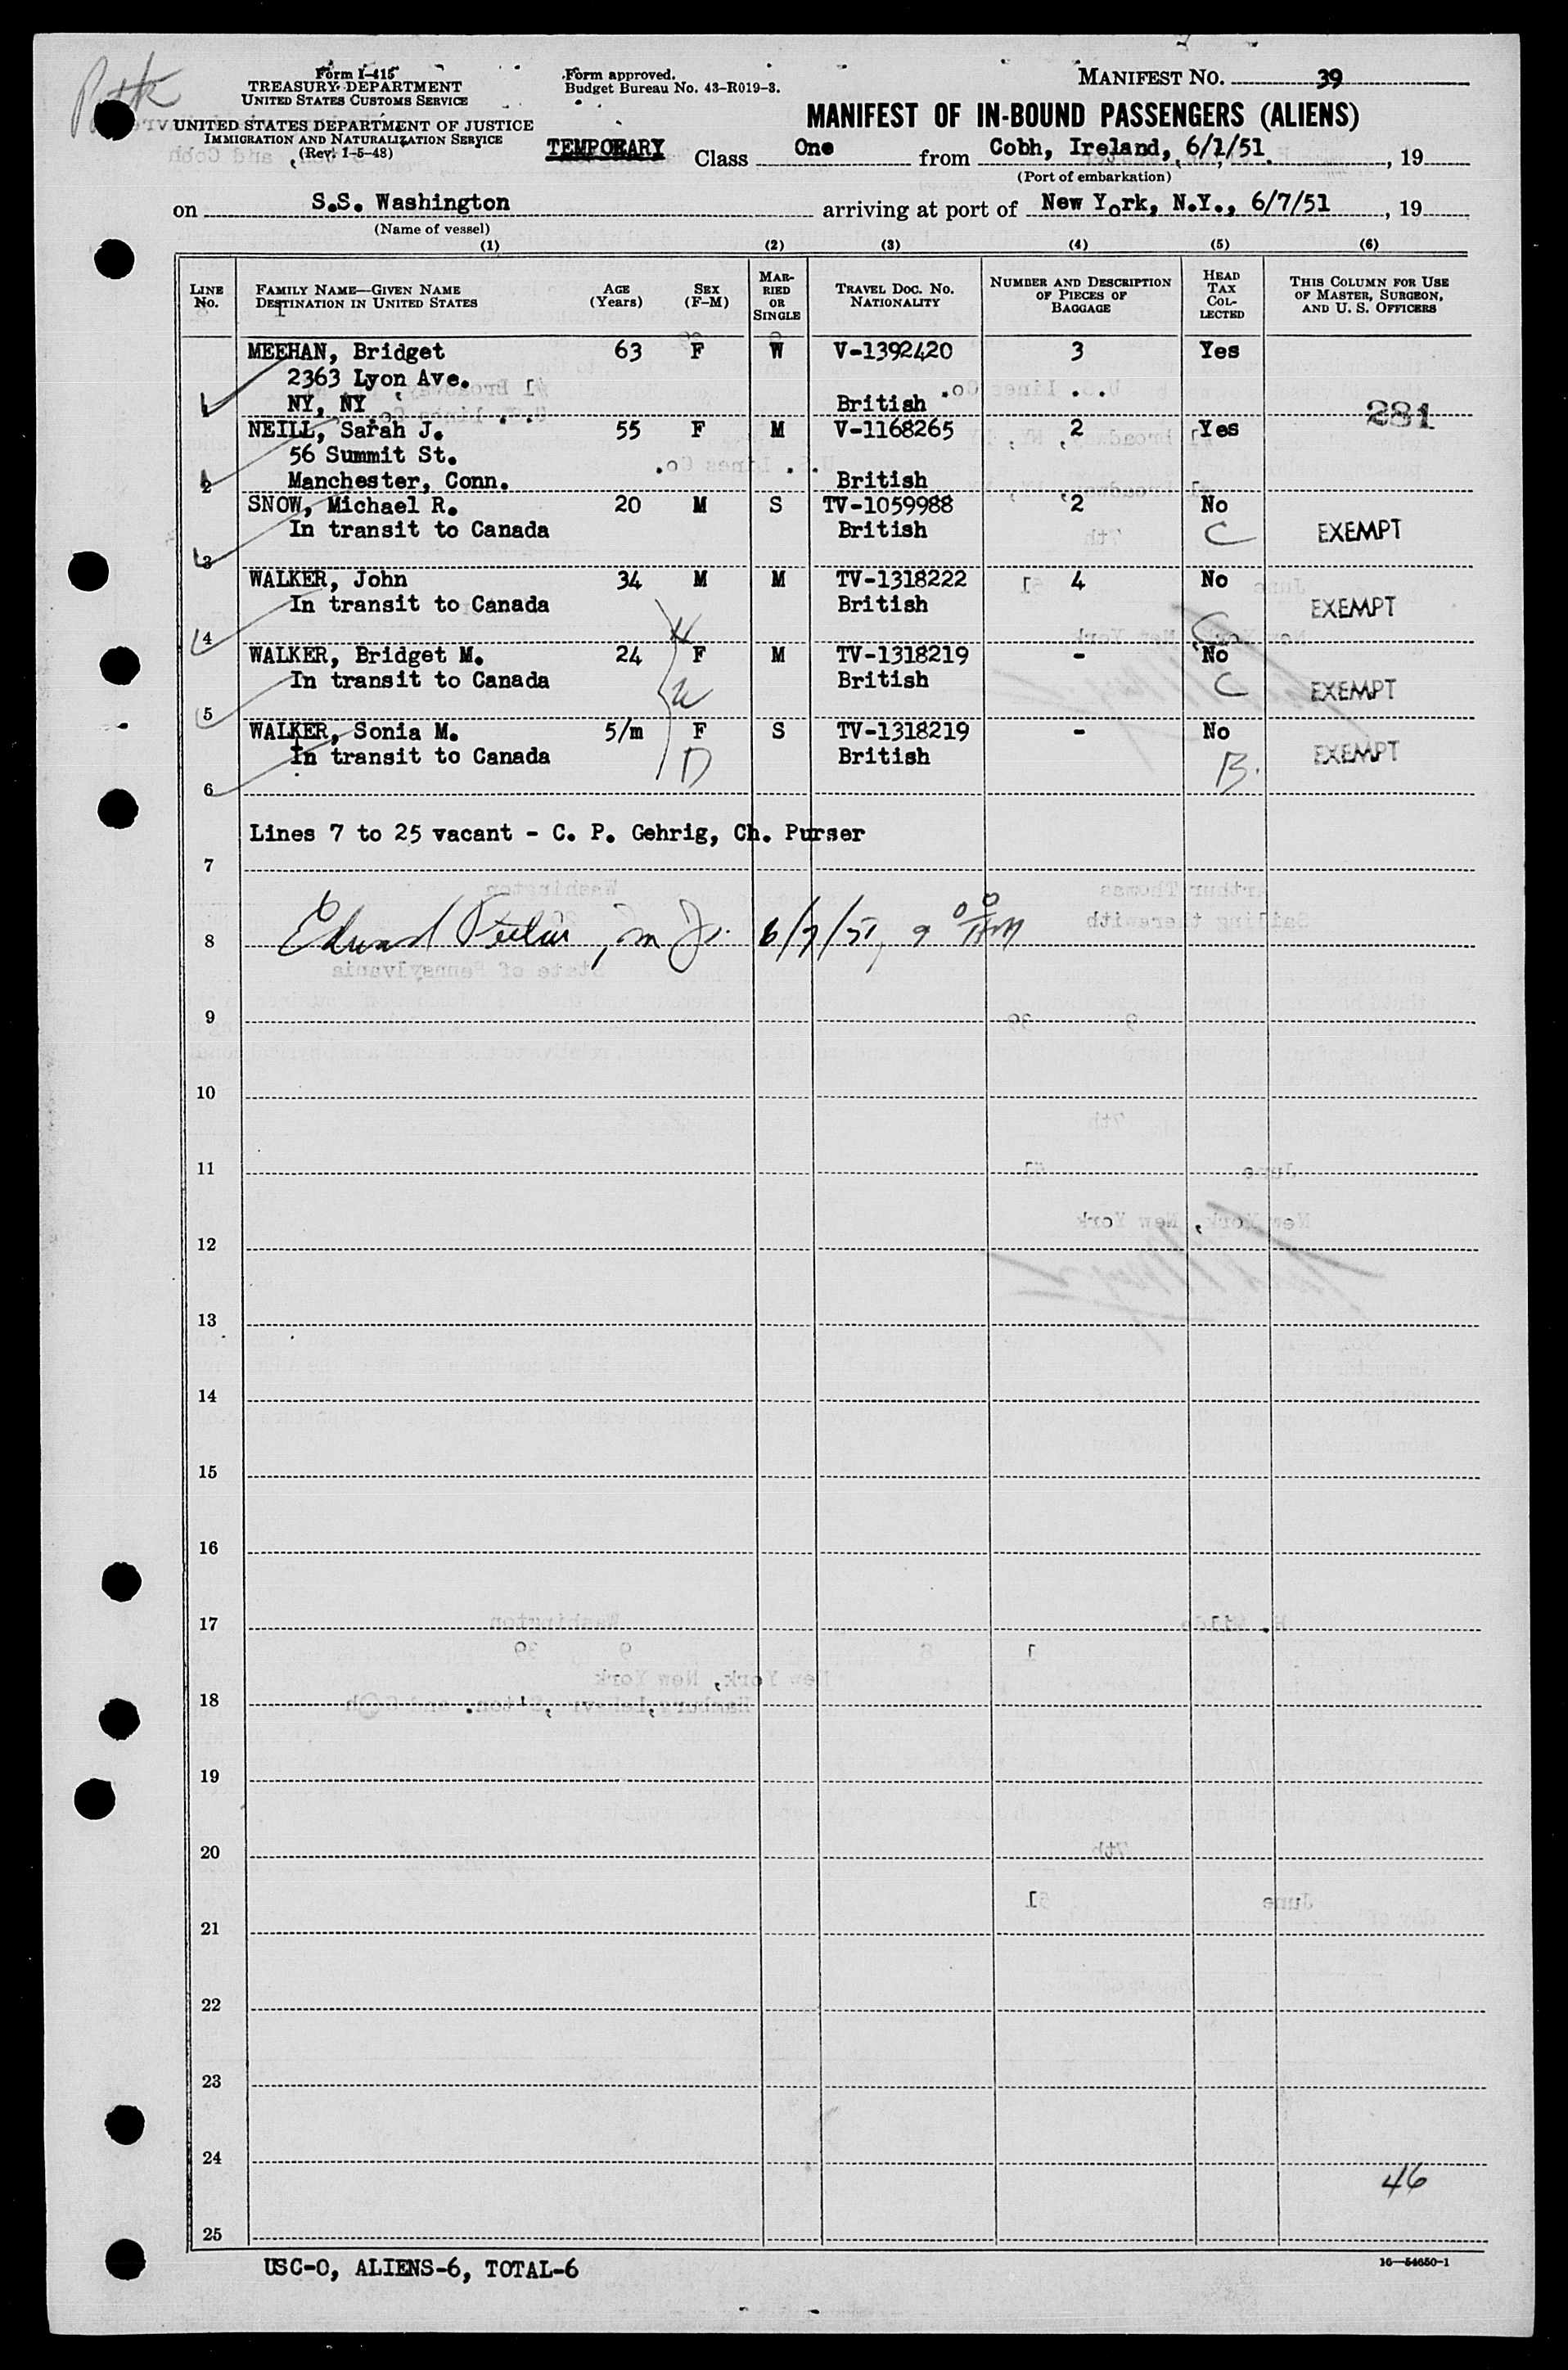 Form I-415
TREASURY DEPARTMENT
UNITED STATES CUSTOMS SERVICE
UNITED STATES DEPARTMENT OF JUSTICE
IMMIGRATION AND NATURALIZATION SERVICE
(Rev. 1-5-48)
Form approved.
Budget Bureau No. 43-R019-3.
MANIFEST NO. 39
MANIFEST OF IN-BOUND PASSENGERS (ALIENS)
TEMPORARY Class One from Cobh, Ireland, 6/1/51, 19
(Port of embarkation)
on S.S. Washington arriving at port of New York, N.Y., 6/7/51, 19
(Name of vessel)
(1) (2) (3) (4) (5) (6)
LINE No. FAMILY NAME—GIVEN NAME DESTINATION IN UNITED STATES AGE (Years) SEX (F-M) MARRIED OR SINGLE TRAVEL DOC. NO. NATIONALITY NUMBER AND DESCRIPTION OF PIECES OF BAGGAGE HEAD TAX COLLECTED THIS COLUMN FOR USE OF MASTER, SURGEON, AND U. S. OFFICERS
MEEHAN, Bridget 63 F W V-1392420 3 Yes
2363 Lyon Ave.
NY, NY British 281
NEILL, Sarah J. 55 F M V-1168265 2 Yes
56 Summit St.
2 Manchester, Conn. British
SNOW, Michael R. 20 M S TV-1059988 2 No
In transit to Canada British C EXEMPT
3
WALKER, John 34 M M TV-1318222 4 No
In transit to Canada British EXEMPT
4 C
WALKER, Bridget M. 24 F M TV-1318219 - No
In transit to Canada British C EXEMPT
5
WALKER, Sonia M. 5/m F S TV-1318219 - No
In transit to Canada British EXEMPT
6 D B.
Lines 7 to 25 vacant - C. P. Gehrig, Ch. Purser
7
8 Edward 6/7/51, 9 00 AM
9
10
11
12
13
14
15
16
17
18
19
20
21
22
23
24
46
25
USC-0, ALIENS-6, TOTAL-6
16—54650-1